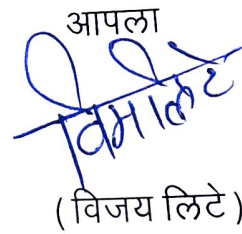 आपला
विमलिटे
(विजय लिटे)